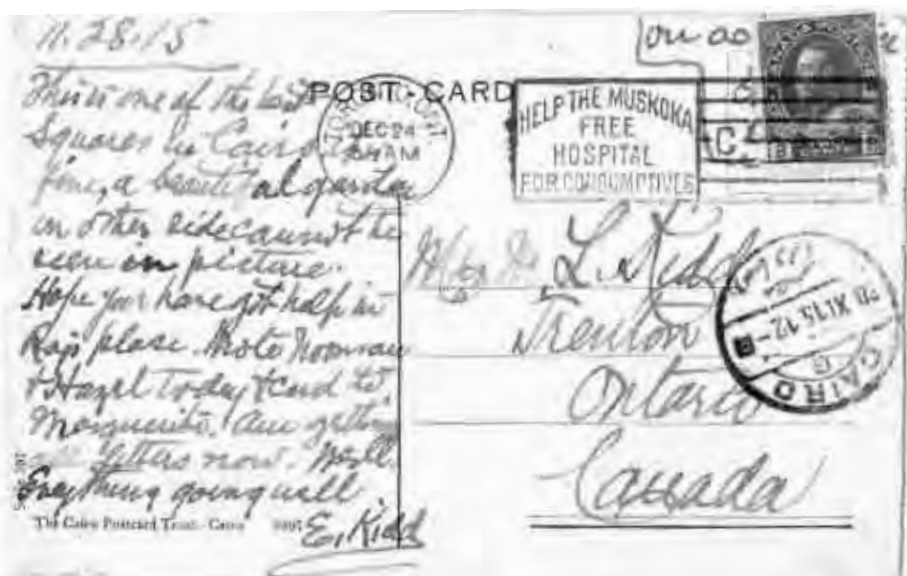 11.28.15
This is one of the best
Squares in Cairo
fine, a beautiful garden
on other side cannot be
seen in picture.
Hope you have got help in
Rajs place. Wrote Norman
+ Hazel today + card to
Marguerite. Am getting
letters now. Well.
Everything going well
E. Kidd
The Cairo Postcard Trust - Cairo
POST-CARD
DEC 24
AM
HELP THE MUSKOKA
FREE
HOSPITAL
FOR CONSUMPTIVES
you as
C.
L. Kidd
Trenton
Ontario
Canada
CAIRO
28 XI 15. 12-